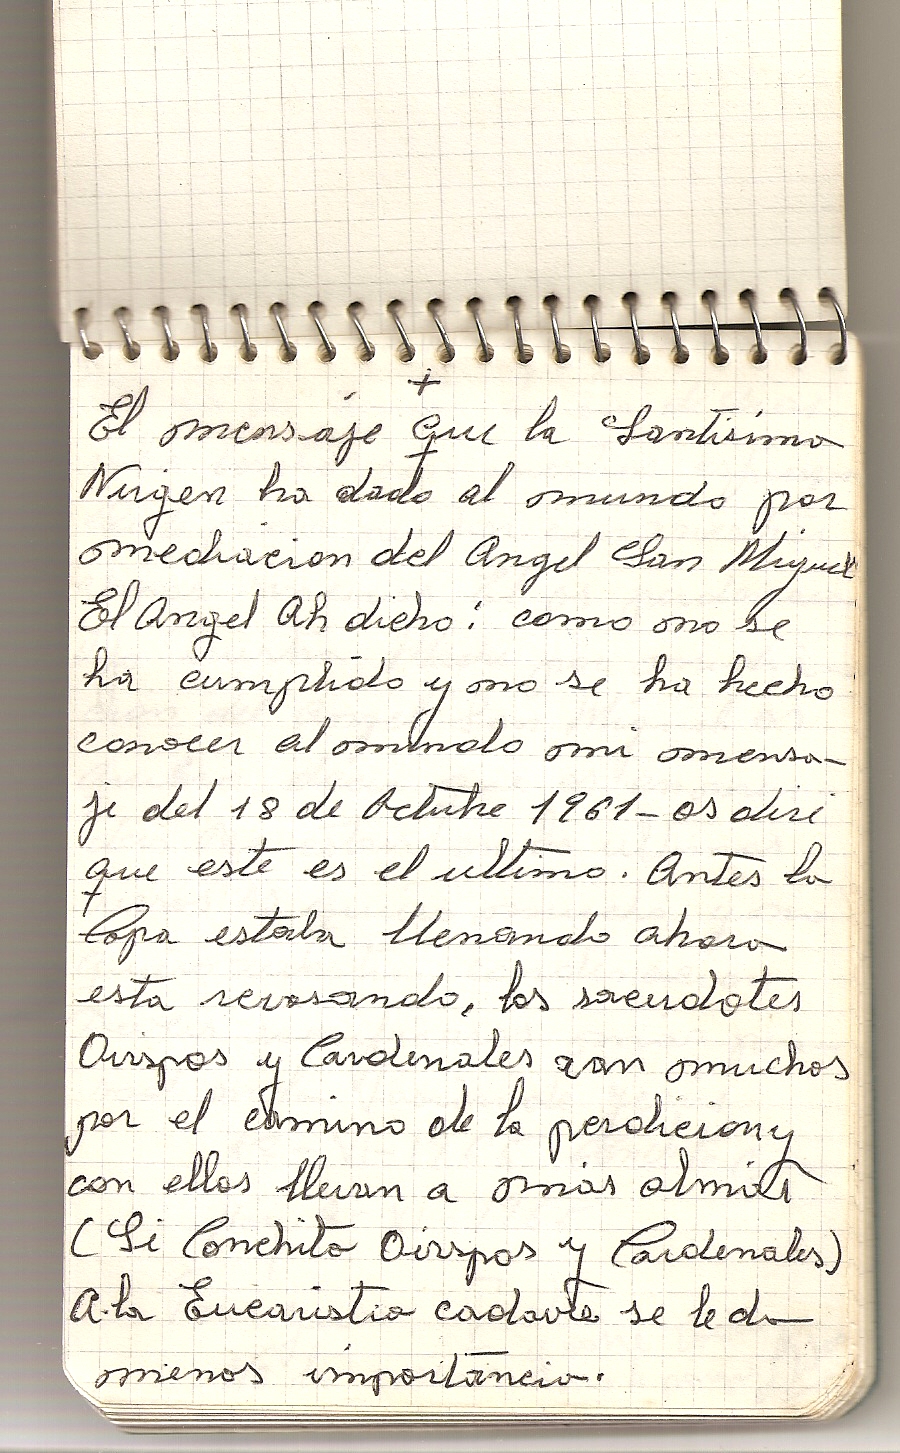 +
El mensáje que la Santísima
Virgen ha dado al mundo por
mediacion del Angel San Miguel
El Angel Ah dicho: como no se
ha cumplido y no se ha hecho
conocer al mundo mi mensa-
je del 18 de Octubre 1961- os diré
que este es el ultimo. Antes la
Copa estaba llenando ahora
esta revosando, los sacerdotes
Oivspos y Cardenales van muchos
por el camino de la perdicion y
con ellos llevan a mas almas
(Si Conchita Oivspos y Cardenales)
A la Eucaristia cadavez se le da
menos importancia.